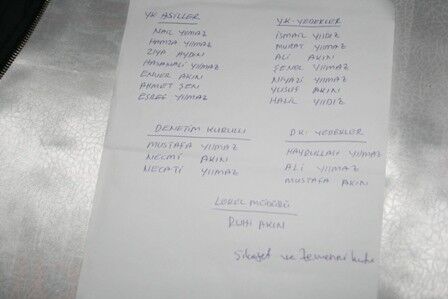 YK ASİLLER
NAİL YILMAZ
HAMZA YILMAZ
ZİYA AYDIN
HASANALİ YILMAZ
ENVER AKIN
AHMET ŞEN
EŞREF YILMAZ
YK-YEDEKLER
İSMAİL YILDIZ
MURAT YILMAZ
ALİ AKIN
ŞENOL YILMAZ
NİYAZİ YILMAZ
YUSUF AKIN
HALİL YILDIZ
DENETİM KURULU
MUSTAFA YILMAZ
NECMİ AKIN
NECATİ YILMAZ
DK YEDEKLER
HAYRULLAH YILMAZ
ALİ YILMAZ
MUSTAFA AKIN
LOKAL MÜDÜRÜ
RUHİ AKIN
ve